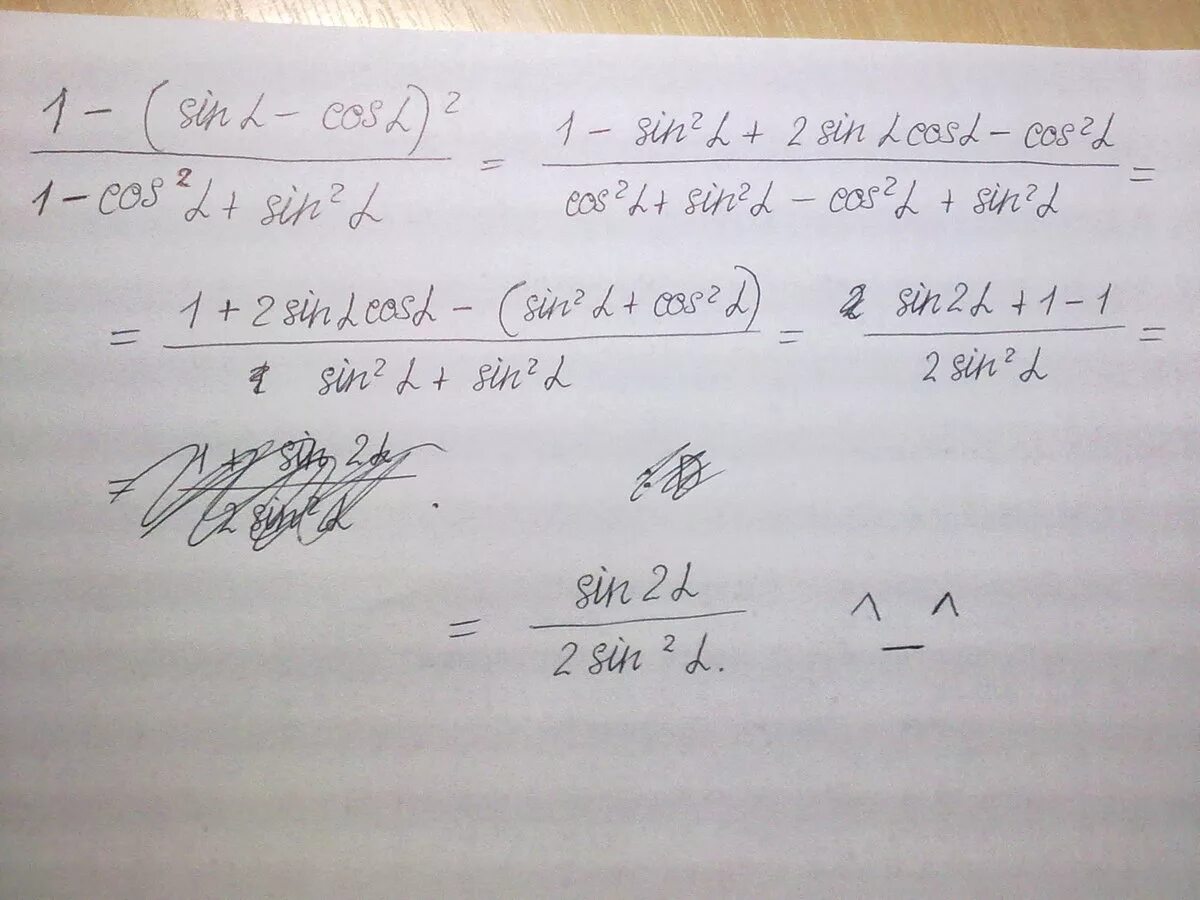 1 - (sin α - cos α)² / 1 - cos² α + sin² α = 1 - sin² α + 2 sin α cos α - cos² α / cos² α + sin² α - cos² α + sin² α =
= 1 + 2 sin α cos α - (sin² α + cos² α) / sin² α + sin² α = sin 2α + 1 - 1 / 2 sin² α =
= sin 2α / 2 sin² α. ^_^